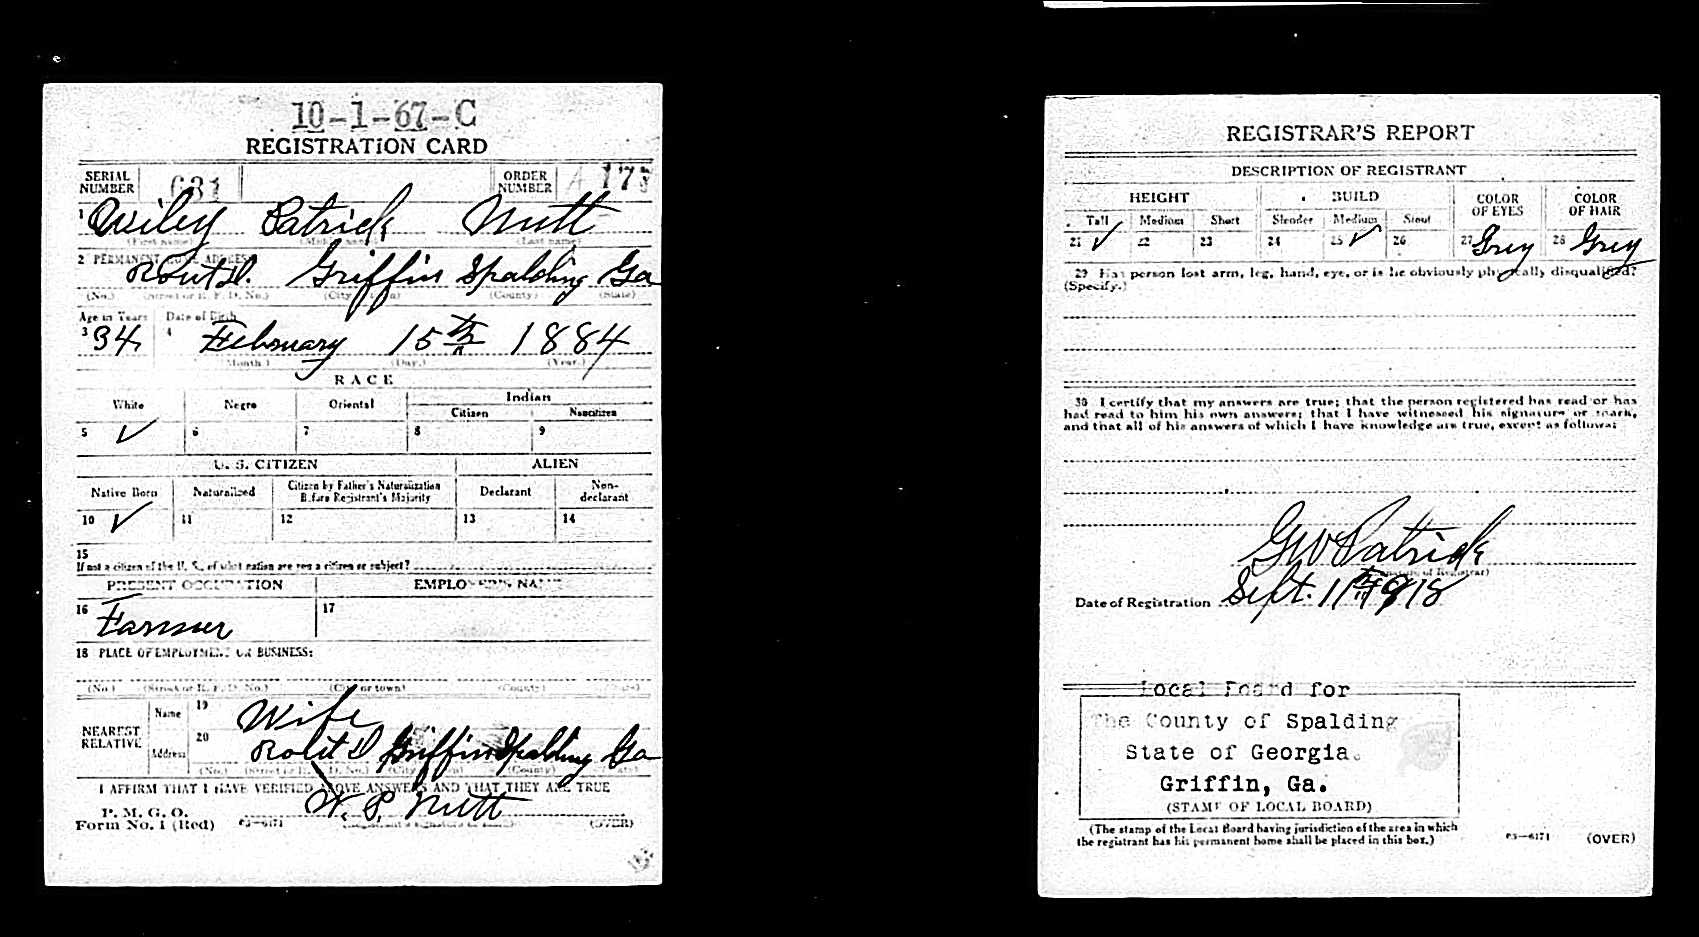 10-1-67-C
REGISTRATION CARD
SERIAL NUMBER 631 ORDER NUMBER A 175
1 Wiley Patrick Nutt
(First name) (Middle name) (Last name)
2 PERMANENT HOME ADDRESS
Rout D. Griffin Spalding Ga
(No.) (Street or R. F. D. No.) (City or town) (County) (State)
Age in Years Date of Birth
3 34 4 February 15th 1884
(Month.) (Day.) (Year.)
RACE
White Negro Oriental Indian
Citizen Noncitizen
5 ✓ 6 7 8 9
U. S. CITIZEN ALIEN
Native Born Naturalized Citizen by Father's Naturalization Before Registrant's Majority Declarant Non-declarant
10 ✓ 11 12 13 14
15
If not a citizen of the U. S., of what nation are you a citizen or subject?
PRESENT OCCUPATION EMPLOYER'S NAME
16 Farmer 17
18 PLACE OF EMPLOYMENT OR BUSINESS:
(No.) (Street or R. F. D. No.) (City or town) (County) (State)
NEAREST RELATIVE Name 19 Wife
Address 20 Rout D Griffin Spalding Ga
(No.) (Street or R. F. D. No.) (City or town) (County) (State)
I AFFIRM THAT I HAVE VERIFIED ABOVE ANSWERS AND THAT THEY ARE TRUE
P. M. G. O.
Form No. 1 (Red) 03—6171 W. P. Nutt (OVER)
REGISTRAR'S REPORT
DESCRIPTION OF REGISTRANT
HEIGHT BUILD COLOR OF EYES COLOR OF HAIR
Tall Medium Short Slender Medium Stout
21 ✓ 22 23 24 25 ✓ 26 27 Grey 28 Grey
29 Has person lost arm, leg, hand, eye, or is he obviously physically disqualified?
(Specify.)
30 I certify that my answers are true; that the person registered has read or has
had read to him his own answers; that I have witnessed his signature or mark,
and that all of his answers of which I have knowledge are true, except as follows:
G W Patrick
(Signature of Registrar)
Date of Registration Sept. 11th 1918
Local Board for
The County of Spalding
State of Georgia.
Griffin, Ga.
(STAMP OF LOCAL BOARD)
(The stamp of the Local Board having jurisdiction of the area in which
the registrant has his permanent home shall be placed in this box.)
03—6171 (OVER)